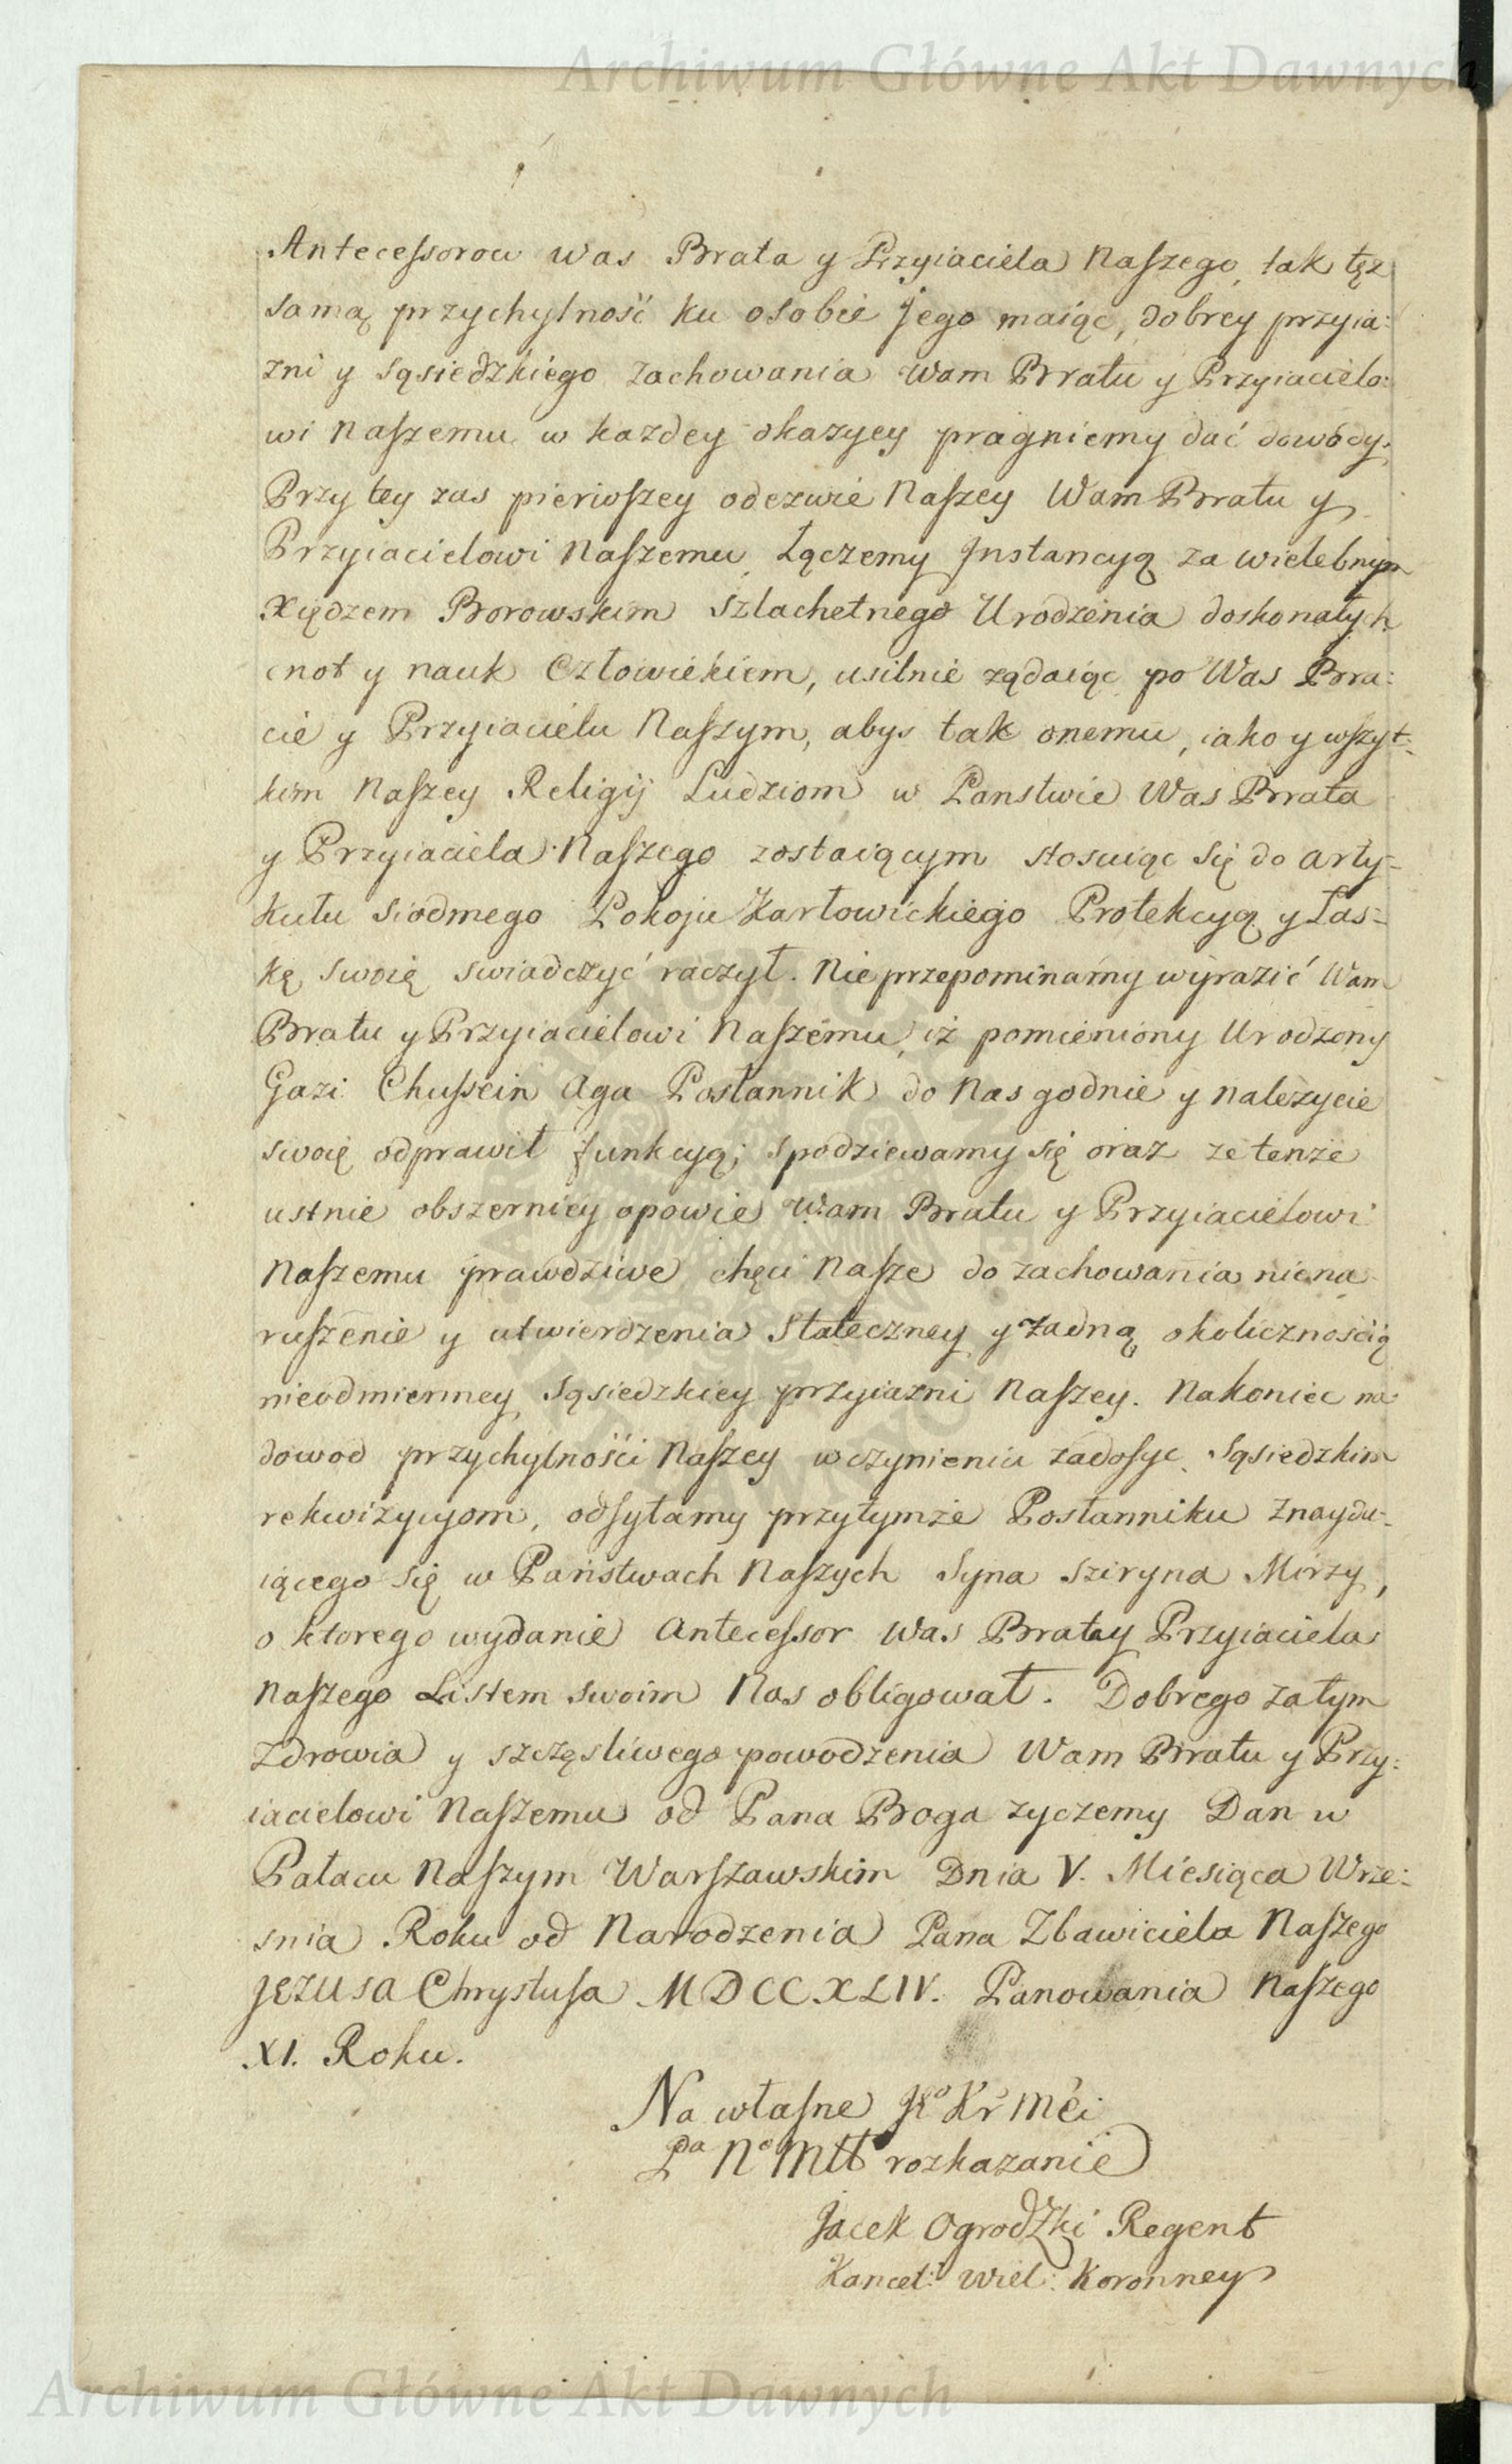 Archiwum Główne Akt Dawnych
Antecessorow Was Brata y Przyiaciela Naszego, tak tęż
samą przychylność ku osobie Jego maiąc, dobrey przyia:
zni y sąsiedzkiego zachowania Wam Bratu y Przyiacielo:
wi Naszemu w kazdey okazyey pragniemy dać dowody.
Przy tey zas pierwszey odezwie Naszey Wam Bratu y
Przyiacielowi Naszemu, Łączemy Jnstancyą za wielebnym
Xiędzem Borowskim Szlachetnego Urodzenia doskonałych
cnot y nauk Człowiekiem, usilnie ządaiąc po Was Bra:
cie y Przyiacielu Naszym, abys tak onemu, iako y wszyt:
kim Naszey Religij Ludziom w Panstwie Was Brata
y Przyiaciela Naszego zostaiącym stosuiąc się do arty-
kułu siodmego Pokoju Karłowickiego Protekcyą y Łas-
kę swoię swiadczyć raczył. Nie przepominamy wyrazić Wam
Bratu y Przyiacielowi Naszemu, iż pomieniony Urodzony
Gazi Chussein Aga Posłannik do Nas godnie y nalezycie
swoię odprawił funkcyą; spodziewamy się oraz ze tenze
ustnie obszerniey opowie Wam Bratu y Przyiacielowi
Naszemu prawdziwe chęci Nasze do zachowania niena
ruszenie y utwierdzenia Stateczney y Żadną okolicznością
nieodmienney Sąsiedzkiey przyiazni Naszey. Nakoniec na
dowod przychylności Naszey w czynieniu zadosyc Sąsiedzkim
rekwizycyom, odsyłamy przytymze Posłanniku Znaydu-
iącego się w Państwach Naszych Syna Sziryna Mirzy,
o ktorego wydanie Antecessor Was Brata y Przyiaciela
Naszego Listem swoim Nas obligował. Dobrego zatym
Zdrowia y szczęsliwego powodzenia Wam Bratu y Przy:
iacielowi Naszemu od Pana Boga zyczemy Dan w
Pałacu Naszym Warszawskim Dnia V. Miesiąca Wrze:
snia Roku od Narodzenia Pana Zbawiciela Naszego
JEZUSA Chrystusa MDCCXLIV. Panowania Naszego
XI. Roku.
Na własne Jº Kr Mci
Pa Nº Młł rozkazanie
Jacek Ogrodzki Regent
Kancel: Wiel: Koronney
Archiwum Główne Akt Dawnych